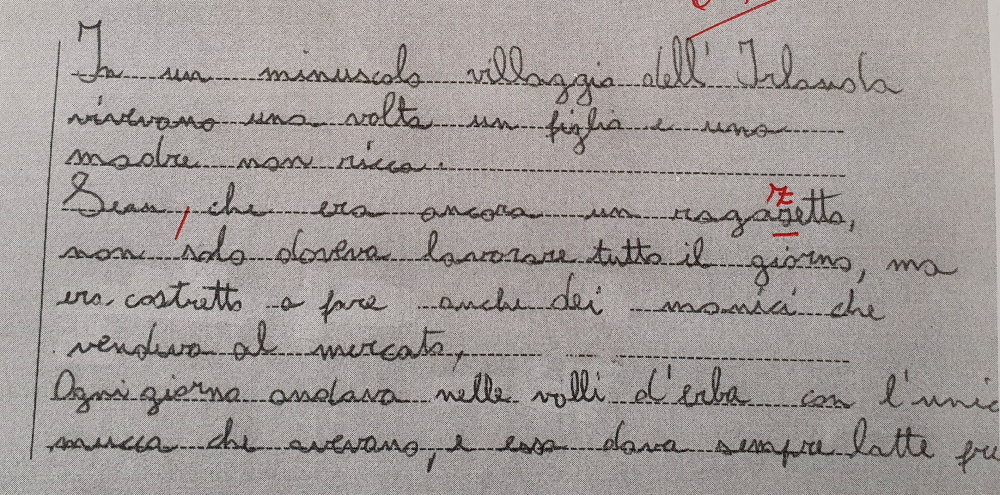 In un minuscolo villaggio dell' Irlanda
vivevano una volta un figlio e una
madre non ricca.
Sean, che era ancora un ragazzetto,
non solo doveva lavorare tutto il giorno, ma
era costretto a fare anche dei manici che
vendeva al mercato,
Ogni giorno andava nelle valli d'erba con l'unic
mucca che avevano, e essa dava sempre latte fre